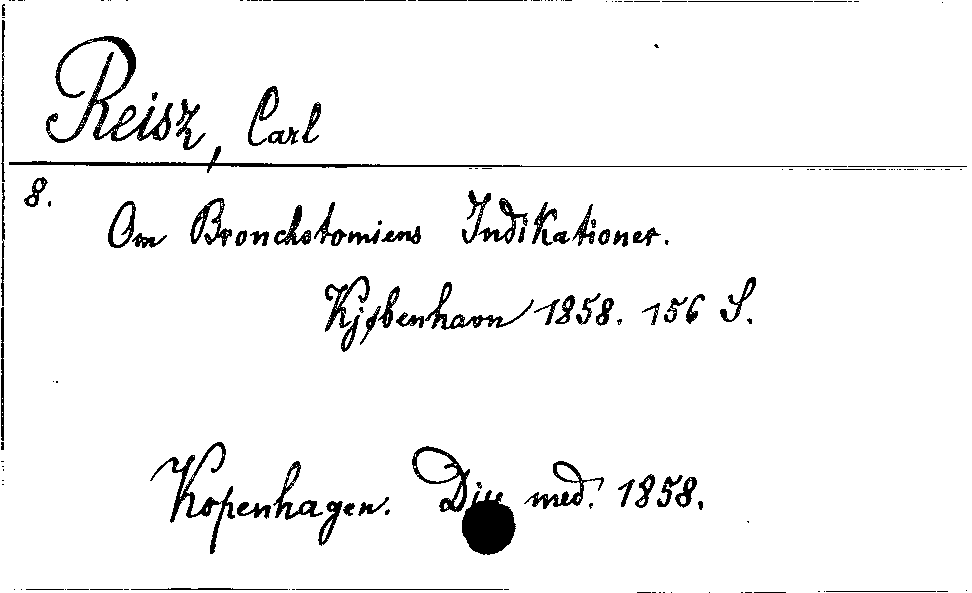 Reisz, Carl
8.
Om Bronchotomiens Indikationer.
Kjøbenhavn 1858. 156 S.
Kopenhagen. Diss med. 1858.